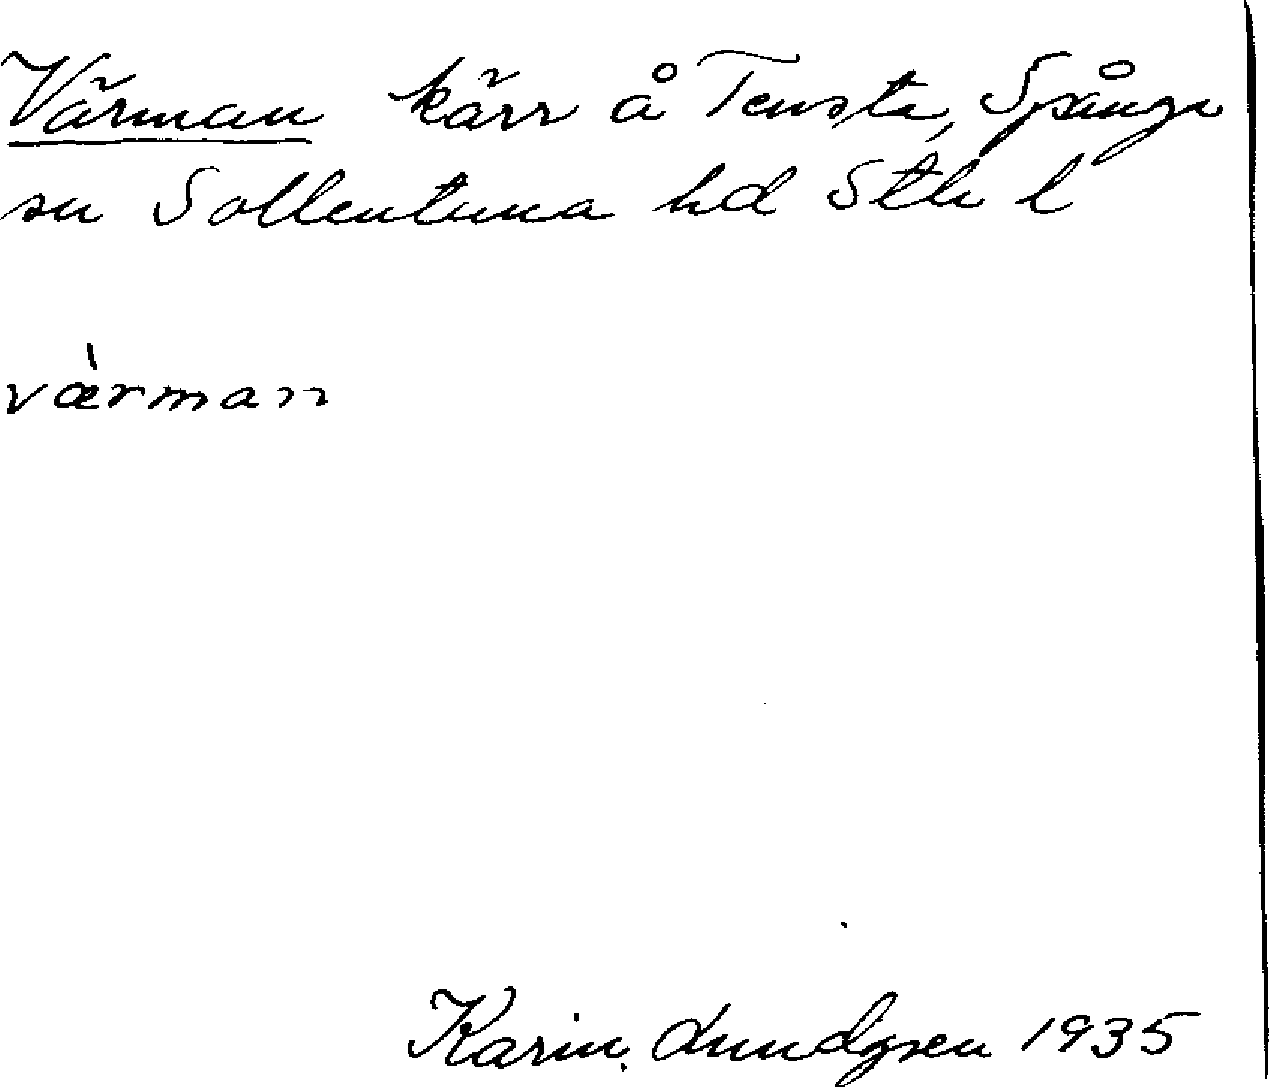 Värman kärr å Tensta, Spånga
sn Sollentuna hd Sthlm l
värman
Karin Lundgren 1935